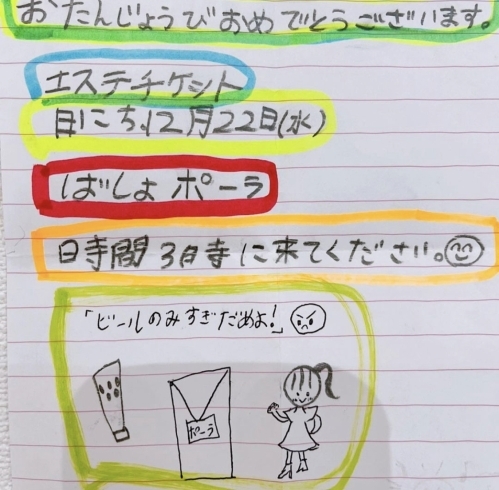 おたんじょうびおめでとうございます。
エステチケット
日にち12月22日(水)
ばしょ ポーラ
日寺間 3日寺に来てください。
「ビールのみすぎだめよ!」
ポーラ